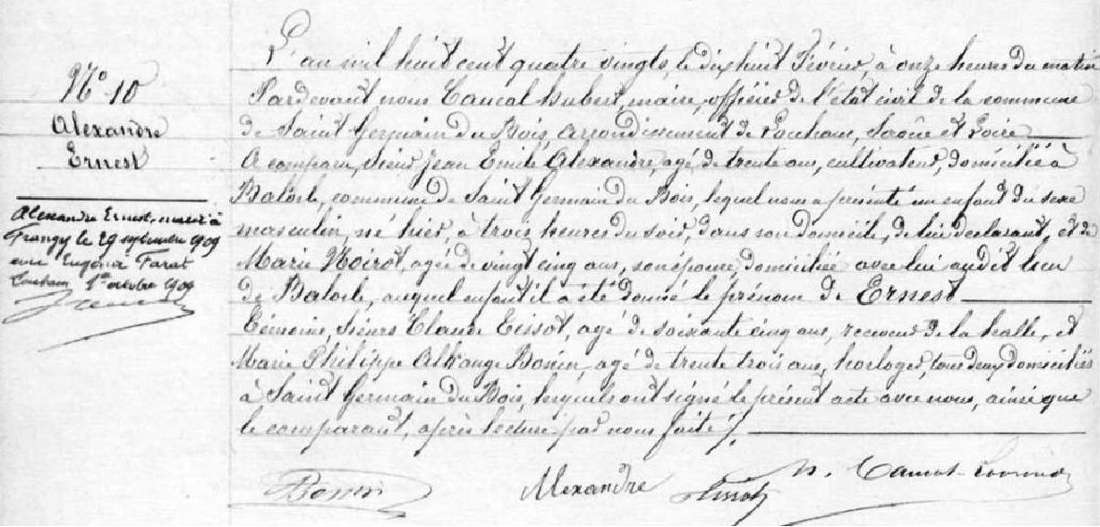 N° 10
Alexandre
Ernest
Alexandre Ernest, marié à
Frangy le 29 septembre 1909
avec Eugénie
Louhans 1er octobre 1909
L'an mil huit cent quatre vingts, le dix huit Février, à onze heures du matin
Pardevant nous Hubert, maire, officier de l'état civil de la commune
de Saint Germain du Bois, arrondissement de Louhans, Saône et Loire
A comparu, sieur Jean Emile Alexandre, agé de trente ans, cultivateur, domicilié à
commune de Saint Germain du Bois, lequel nous a présenté un enfant du sexe
masculin, né hier, à trois heures du soir, dans son domicile, de lui déclarant, et de
Marie Noirot, agée de vingt cinq ans, son épouse, domiciliée avec lui audit lieu
de auquel enfant il a été donné le prénom de Ernest
Témoins, sieurs Claude Tissot, agé de soixante cinq ans, receveur de la halle, et
Marie Philippe Bonin, agé de trente trois ans, horloger, tous deux domiciliés
à Saint Germain du Bois, lesquels ont signé le présent acte avec nous, ainsi que
le comparant, après lecture par nous faite
Bonin Alexandre Tissot